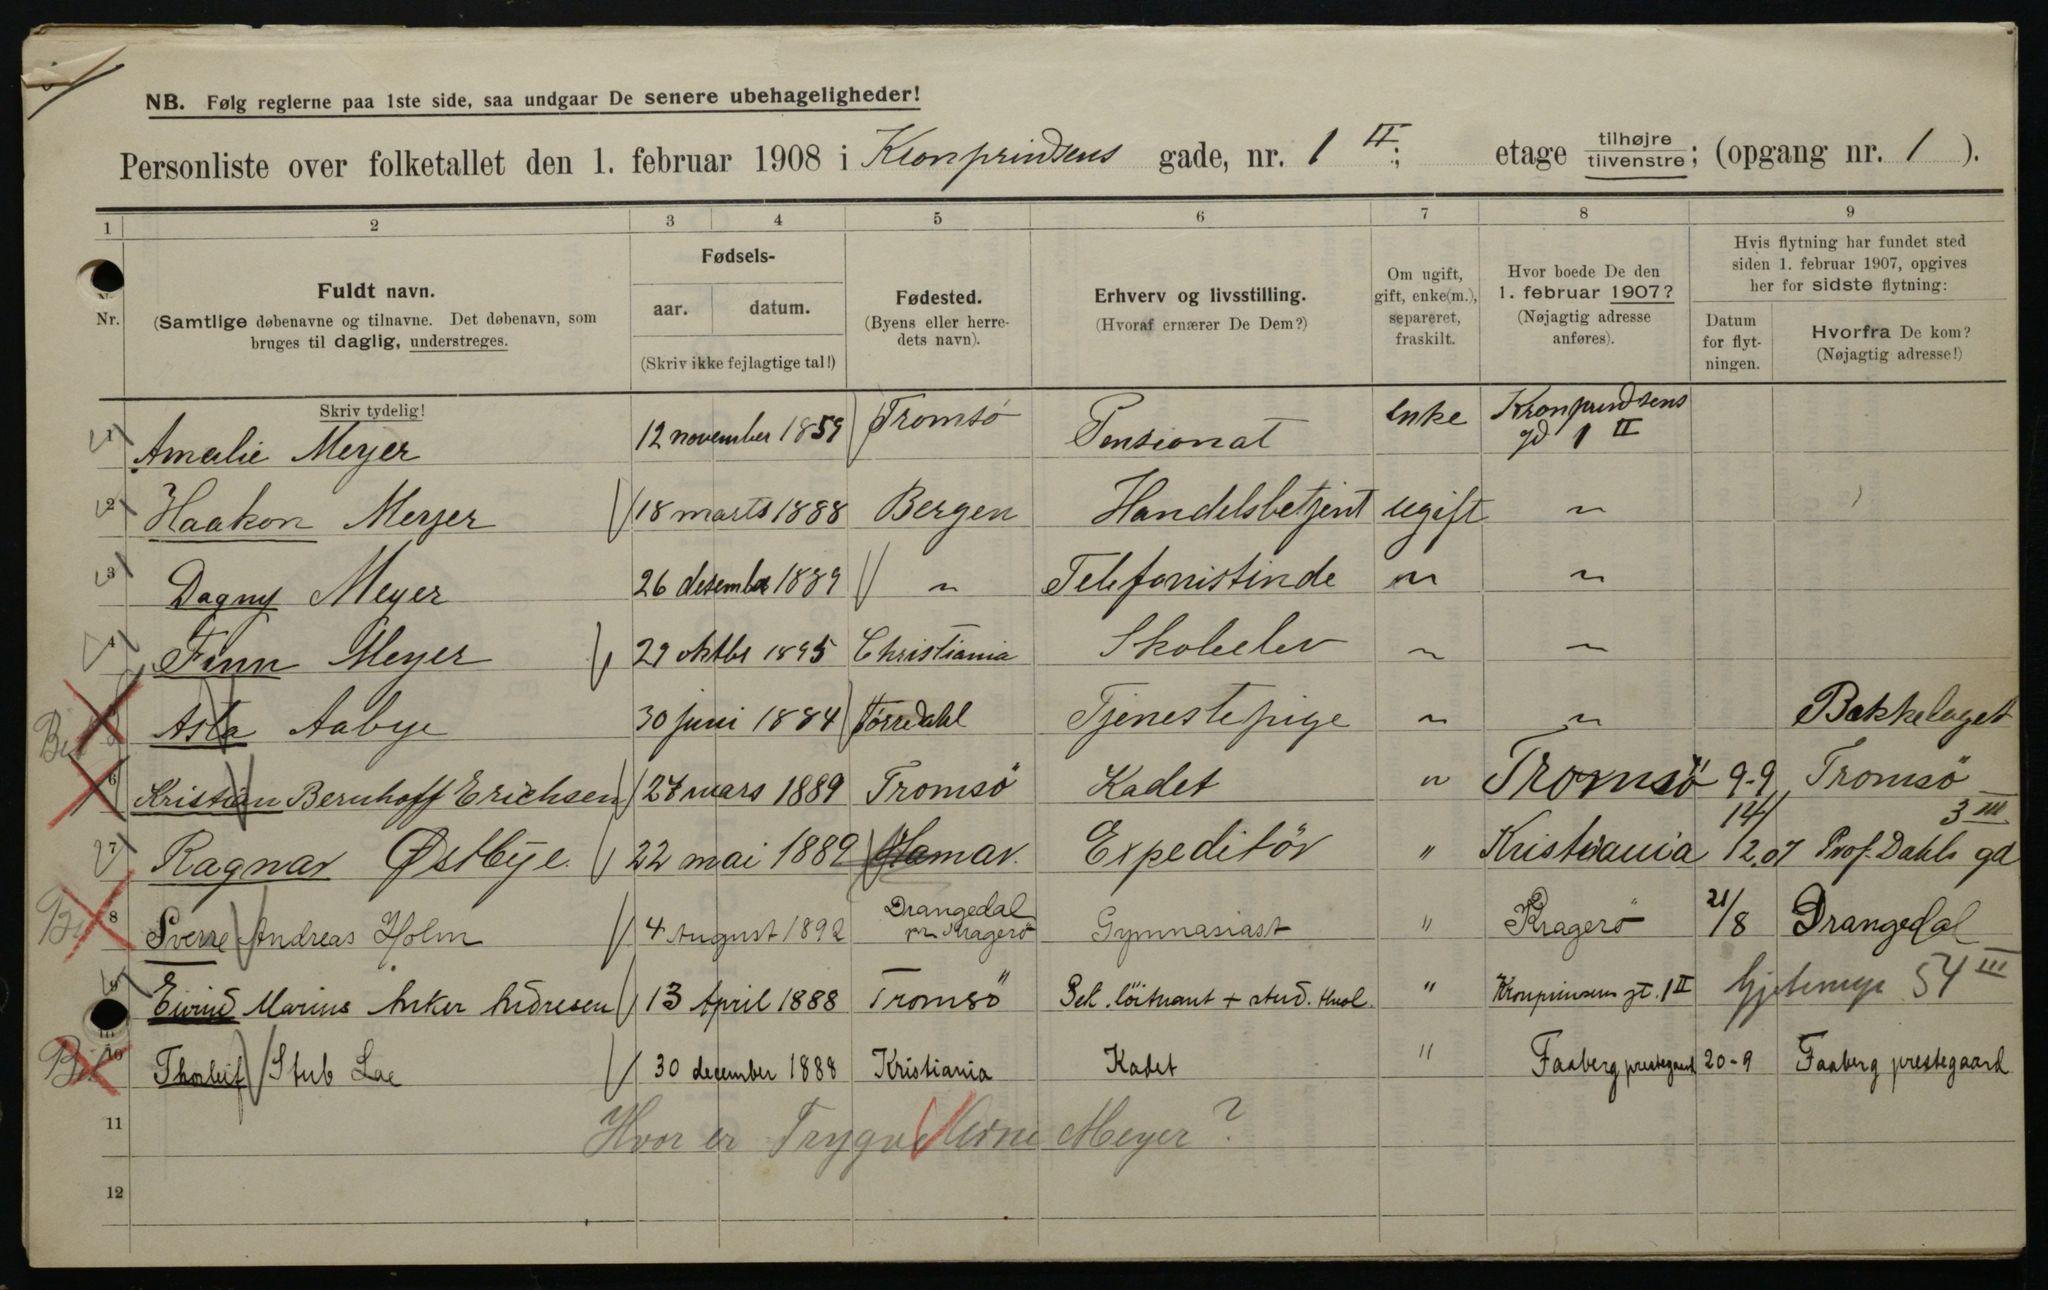 NB. Følg reglerne paa 1ste side, saa undgaar De senere ubehageligheder!
Personliste over folketallet den 1. februar 1908 i Kronprindsens gade, nr. 1 II; etage tilhøjre tilvenstre; (opgang nr. 1).
1 2 3 4 5 6 7 8 9
Nr.
Fuldt navn.
(Samtlige døbenavne og tilnavne. Det døbenavn, som
bruges til daglig, understreges.
Skriv tydelig!
Fødsels-
aar. datum.
(Skriv ikke fejlagtige tal!)
Fødested.
(Byens eller herre-
dets navn).
Erhverv og livsstilling.
(Hvoraf ernærer De Dem?)
Om ugift,
gift, enke(m.),
separeret,
fraskilt.
Hvor boede De den
1. februar 1907?
(Nøjagtig adresse
anføres).
Hvis flytning har fundet sted
siden 1. februar 1907, opgives
her for sidste flytning:
Datum
for flyt-
ningen.
Hvorfra De kom?
(Nøjagtig adresse!)
1 Amalie Meyer 12 november 1859 Tromsö Pensionat enke Kronprindsens
gd 1 II
2 Haakon Meyer 18 marts 1888 Bergen Handelsbetjent ugift ~
3 Dagny Meyer 26 desember 1889 ~ Telefonistinde ~ ~
4 Finn Meyer 29 oktbr 1895 Christiania Skoleelev ~ ~
5 Asta Aabye 30 juni 1884 Tørredahl Tjenestepige ~ ~ Bekkelaget
6 Kristian Bernhoff Erichsen 27 mars 1889 Tromsö Kadet " Tromsö 9-9 Tromsö
7 Ragnar Østbye. 22 mai 1889 Hamar. Expeditör " Kristiania 14/12.07 Prof. Dahls gd 3 III
8 Sverre Andreas Holm 4 August 1892 Drangedal
pr Kragerö Gymnasiast " Kragerö 21/8 Drangedal
9 Eivind Marius Anker Andresen 13 April 1888 Tromsö Sek. löitnant + stud. " Kronprinsens gt. 1 II 54 III
10 Thorleif Stub Lae 30 december 1888 Kristiania Kadet " Faaberg prestegaard 20-9 Faaberg prestegaard
11 Hvor er Trygve Arne Meyer?
12